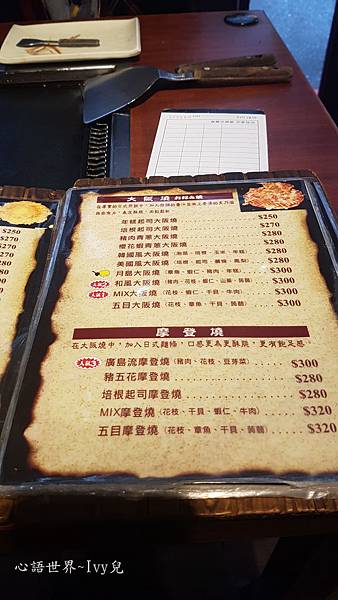 $250
$270
$270
大阪燒
年糕起司大阪燒 $250
培根起司大阪燒 $270
豬肉青蔥大阪燒 $280
櫻花蝦青蔥大阪燒 $280
韓國風大阪燒(泡菜、培根、玉米、年糕) $280
美國風大阪燒 $280
月島大阪燒(章魚、蝦仁、豬肉、年糕) $300
和風大阪燒 $300
MIX大阪燒(花枝、蝦仁、干貝、牛肉) $300
五目大阪燒(花枝、章魚、干貝、蒟蒻) $300
摩登燒
在大阪燒中,加入日式麵條,口感更為更酥脆,更有飽足感。
廣島流摩登燒(豬肉、花枝、豆芽菜) $300
豬五花摩登燒 $280
培根起司摩登燒 $280
MIX摩登燒(花枝、干貝、蝦仁、牛肉) $320
五目摩登燒(花枝、章魚、干貝、蒟蒻) $320
心語世界~Ivy兒